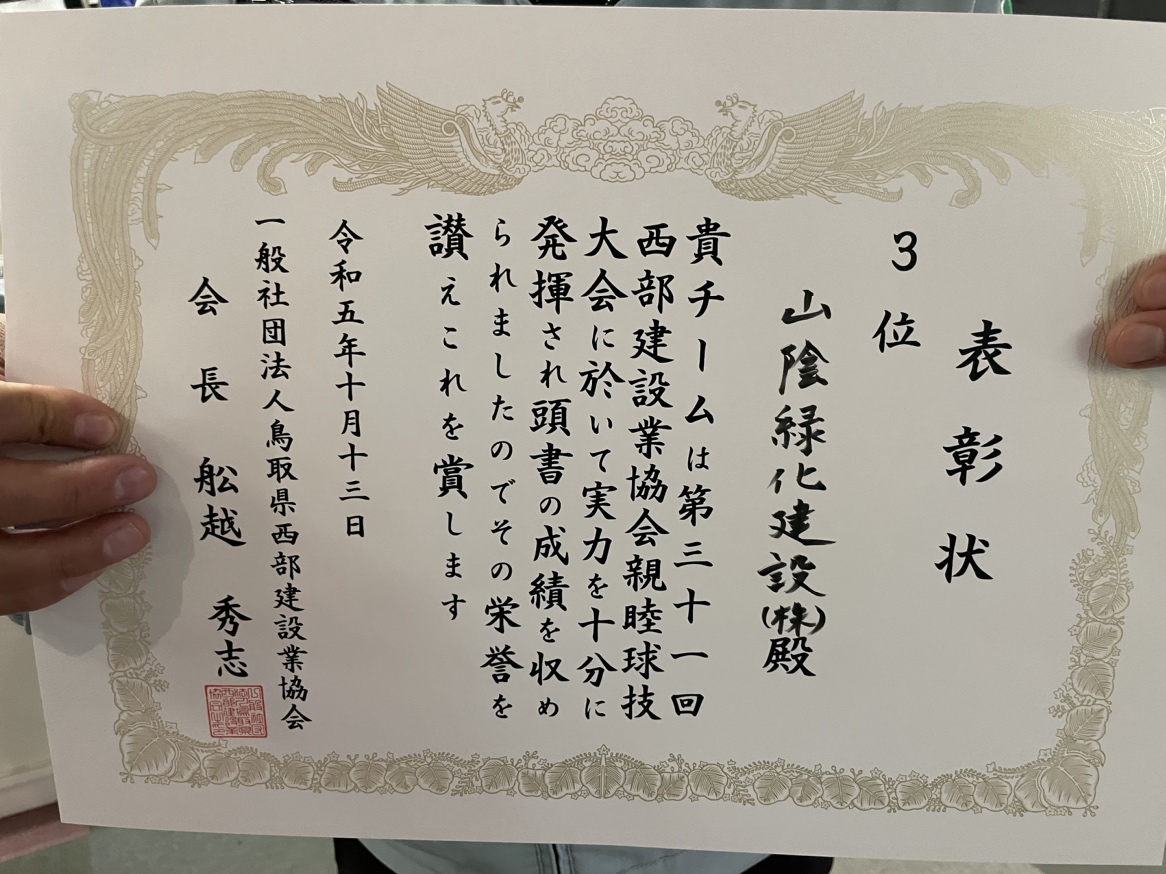 表彰状
3位
山陰緑化建設(株)殿
貴チームは第三十一回
西部建設業協会親睦球技
大会に於いて実力を十分に
発揮され頭書の成績を収め
られましたのでその栄誉を
讃えこれを賞します
令和五年十月十三日
一般社団法人鳥取県西部建設業協会
会長 舩越 秀志